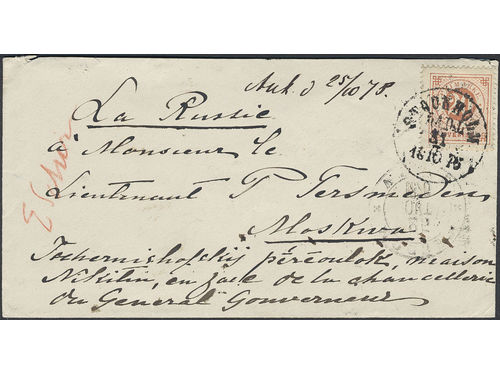 Ank. d 25/10 78.
La Russie
à Monsieur le
Lieutenant P Tersmeden
Moskwa
Tschernishofskij péréoulok, maison
Nikitin, en face de la chancellerie
du General Gouverneur
STOCKHOLM
31
18 10 78